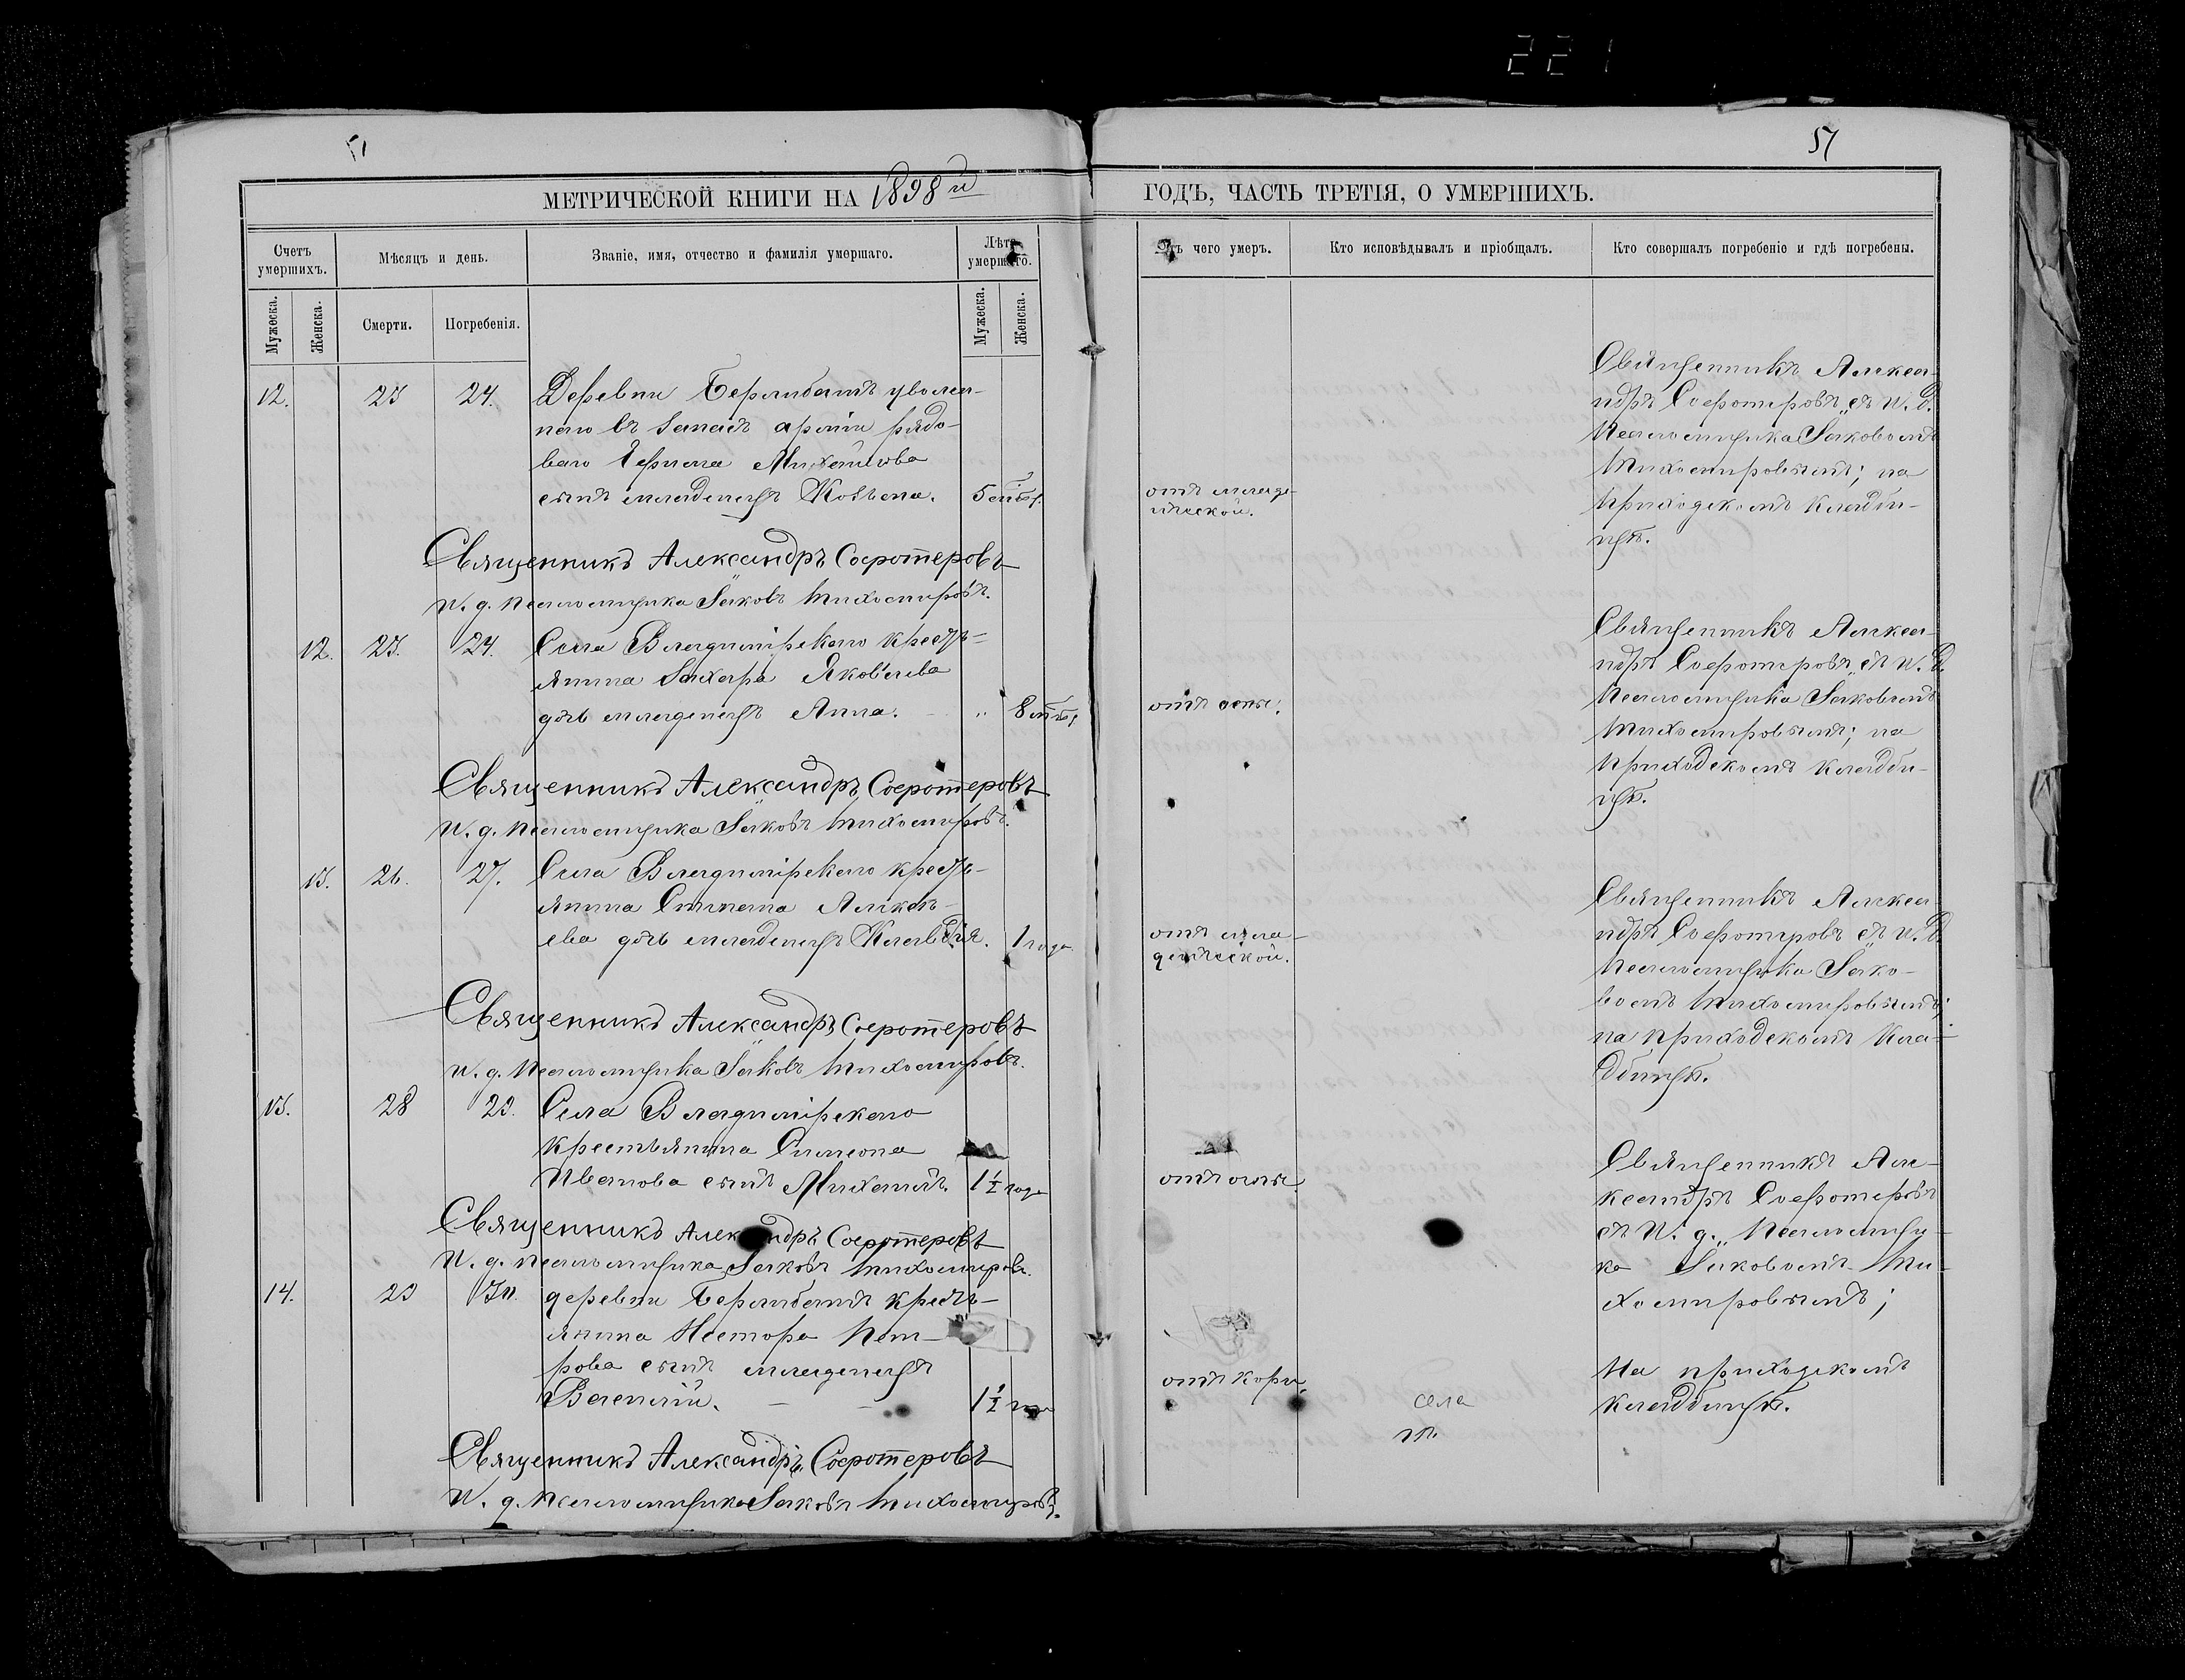 221
51
51
МЕТРИЧЕСКОЙ КНИГИ НА 1898й
ГОДЪ, ЧАСТЬ ТРЕТІЯ, О УМЕРШИХЪ.
Счетъ умершихъ.
Мѣсяцъ и день.
Званіе, имя, отчество и фамилія умершаго.
Лѣта умершаго.
Мужеска.
Женска.
Смерти.
Погребенія.
Мужеска.
Женска.
Отъ чего умеръ.
Кто исповѣдывалъ и пріобщалъ.
Кто совершалъ погребеніе и гдѣ погребены.
12. 23 24. Деревни уволен-
наго въ запасъ арміи рядо-
ваго Михайлова
сынъ младенецъ 5
отъ младе-
нческой.
Священникъ Алекса-
ндръ Соеротеровъ съ И. д.
Псаломщика Іаковомъ
Тихомировымъ; на
приходскомъ кладби-
щѣ.
Священникъ Александръ Соеротеровъ
И. д. Псаломщика Іаковъ Тихомировъ.
12. 23. 24. Села Владимірскаго кресть-
янина Захара Яковлева
дочь младенецъ Анна. " 8
отъ оспы.
Священникъ Алекса-
ндръ Соеротеровъ съ И. д.
Псаломщика Іаковомъ
Тихомировымъ; на
приходскомъ кладби-
щѣ.
Священникъ Александръ Соеротеровъ
И. д. Псаломщика Іаковъ Тихомировъ.
13. 26. 27. Села Владимірскаго кресть-
янина Алексѣ-
ева дочь младенецъ Клавдія. 1 года
отъ мла-
денческой.
Священникъ Алекса-
ндръ Соеротеровъ съ И. д.
Псаломщика Іако-
вомъ Тихомировымъ;
на приходскомъ кла-
дбищѣ.
Священникъ Александръ Соеротеровъ
И. д. Псаломщика Іаковъ Тихомировъ.
13. 28 29. Села Владимірскаго
крестьянина Симеона
Иванова сынъ Михаилъ. 1½ года
отъ оспы.
Священникъ Але-
ксандръ Соеротеровъ
съ И. д. Псаломщи-
ка Іаковомъ Ти-
хомировымъ;
Священникъ Александръ Соеротеровъ
И. д. Псаломщика Іаковъ Тихомировъ.
14. 29 30. деревни кресть-
янина Нестора Пет-
рова сынъ младенецъ
Василій. 1½ года
отъ кори.
села
На приходскомъ
кладбищѣ.
Священникъ Александръ Соеротеровъ
И. д. Псаломщика Іаковъ Тихомировъ.